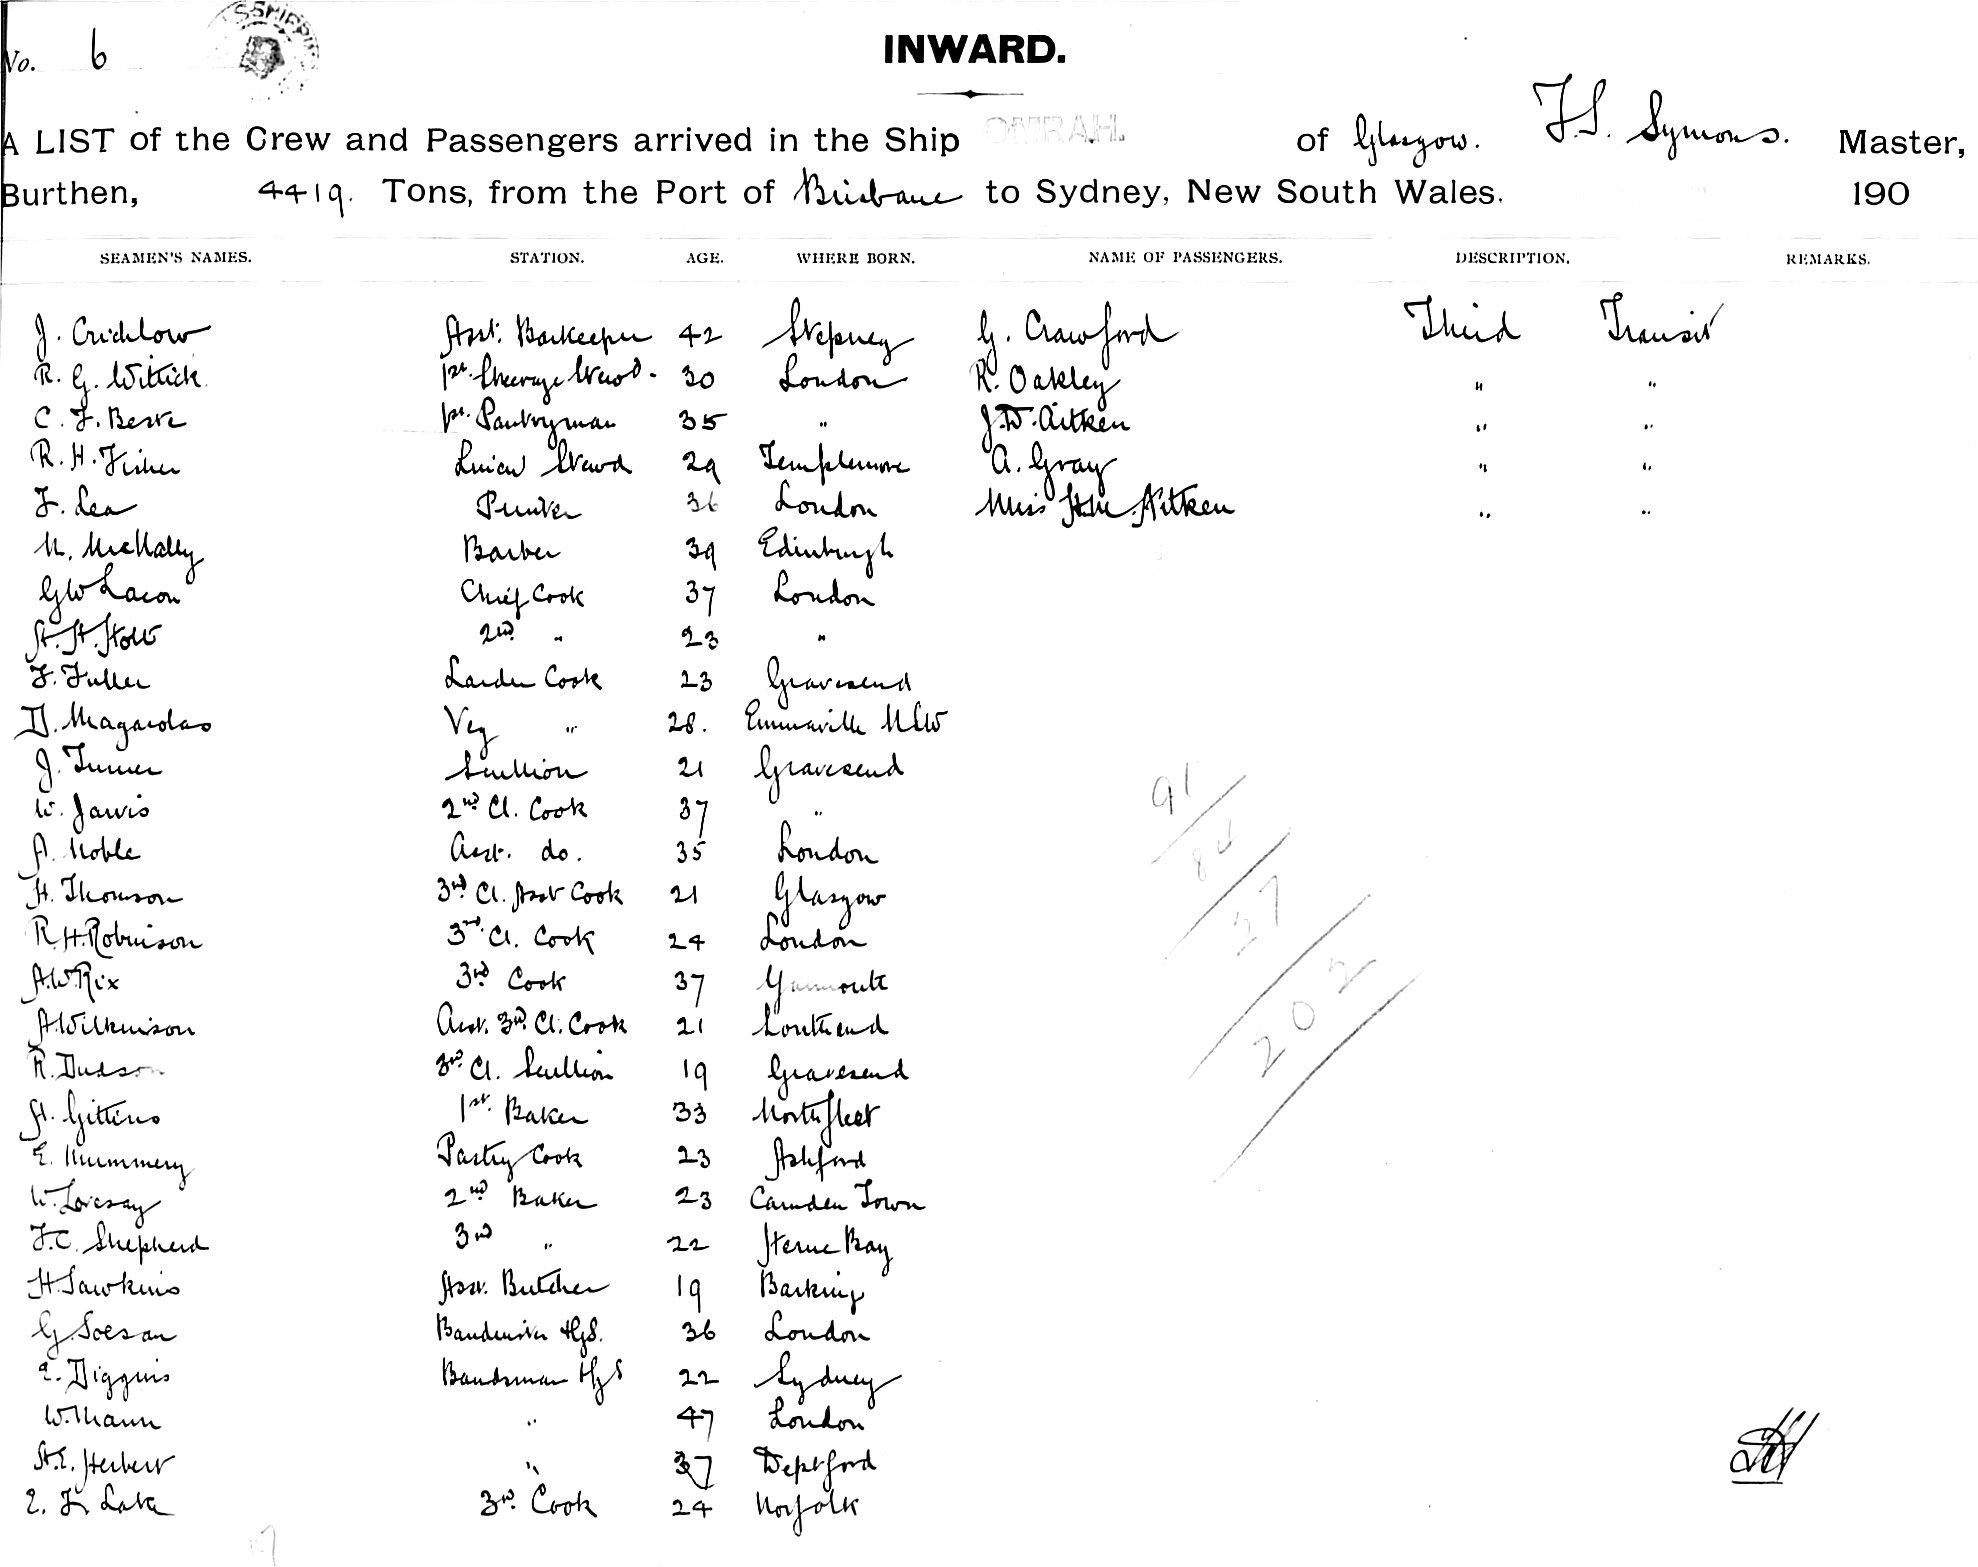 No. 6
INWARD.
A LIST of the Crew and Passengers arrived in the Ship OMRAH. of Glasgow. F.S. Symons. Master,
Burthen, 4419. Tons, from the Port of Brisbane to Sydney, New South Wales. 190
SEAMEN'S NAMES. STATION. AGE. WHERE BORN. NAME OF PASSENGERS. DESCRIPTION. REMARKS.
J. Crichlow Asst. Barkeeper 42 Stepney G. Crawford Third Transit
R. G. Wittick 1st. Steerage Stewd. 30 London R. Oakley " "
C. F. Beste 1st. Pantryman 35 " J.W. Aitken " "
R. H. Fisher Linen Stewd 29 Templemore A. Gray " "
F. Lea Printer 36 London Miss Aitken " "
M. McNally Barber 39 Edinburgh
G W Lacon Chief Cook 37 London
H. H. Holt 2nd " 23 "
F. Fuller Larder Cook 23 Gravesend
D. Magardas Veg " 28. Emmaville NSW
J. Turner Scullion 21 Gravesend
W. Jarvis 2nd Cl. Cook 37 "
A. Noble Asst. do. 35 London
H. Thomson 3rd Cl. Asst Cook 21 Glasgow
R. H. Robinson 3rd Cl. Cook 24 London
A.W. Rix 3rd Cook 37 Yarmouth
A. Wilkinson Asst. 3rd Cl. Cook 21 Southend
R. Dudson 3rd Cl. Scullion 19 Gravesend
H. Gittins 1st. Baker 33 Northfleet
E. Mummery Pastry Cook 23 Ashford
W. Lovesay 2nd Baker 23 Camden Town
F.C. Shepherd 3rd " 22 Herne Bay
H. Sawkins Asst. Butcher 19 Barking
G. Soesan 36 London
E. Diggins Bandsman 22 Sydney
W. Mann " 47 London
H.E. Herbert " 37 Deptford
E. F. Lake 3rd. Cook 24 Norfolk
91
84
27
202